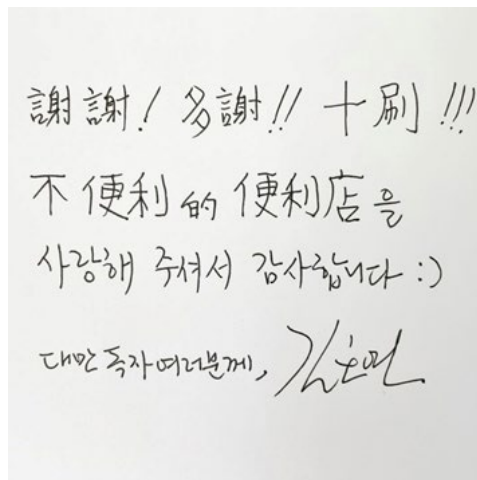 謝謝! 多謝!! 十刷!!!
不便利的便利店을
사랑해 주셔서 감사합니다 :)
대만 독자여러분께, 김호연